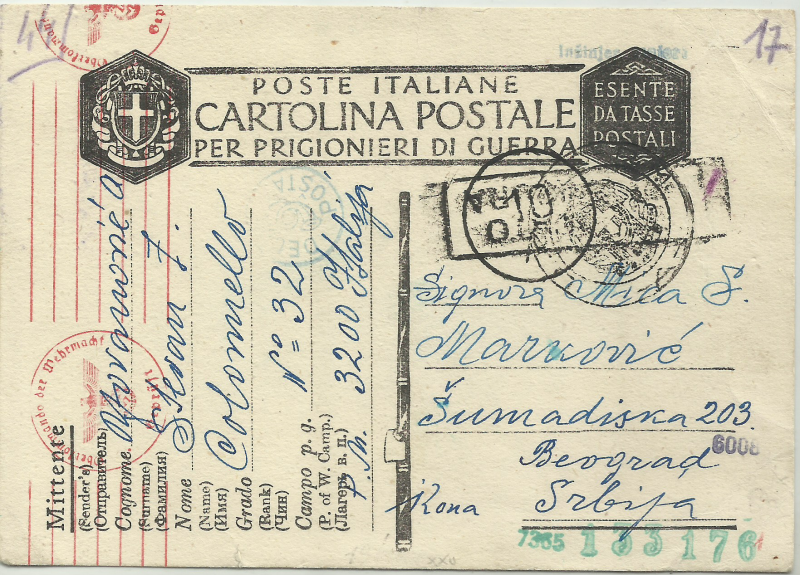 17
POSTE ITALIANE
CARTOLINA POSTALE
PER PRIGIONIERI DI GUERRA
ESENTE
DA TASSE
POSTALI
10
Signora Mica S.
Marković
Šumadiska 203.
6008
Beograd
Srbija
7365 133176
Mittente
(Sender's)
(Отправитель)
Cognome
(Surname)
(Фамилия)
Nome
(Name)
(Имя)
Grado Colonnello
(Rank)
(Чин)
Campo p. g. N° 32
(P. of W. Camp.)
(Лагерь в. п.)
P. M. 3200 Italija
Oberkommando der Wehrmacht
Geprüft